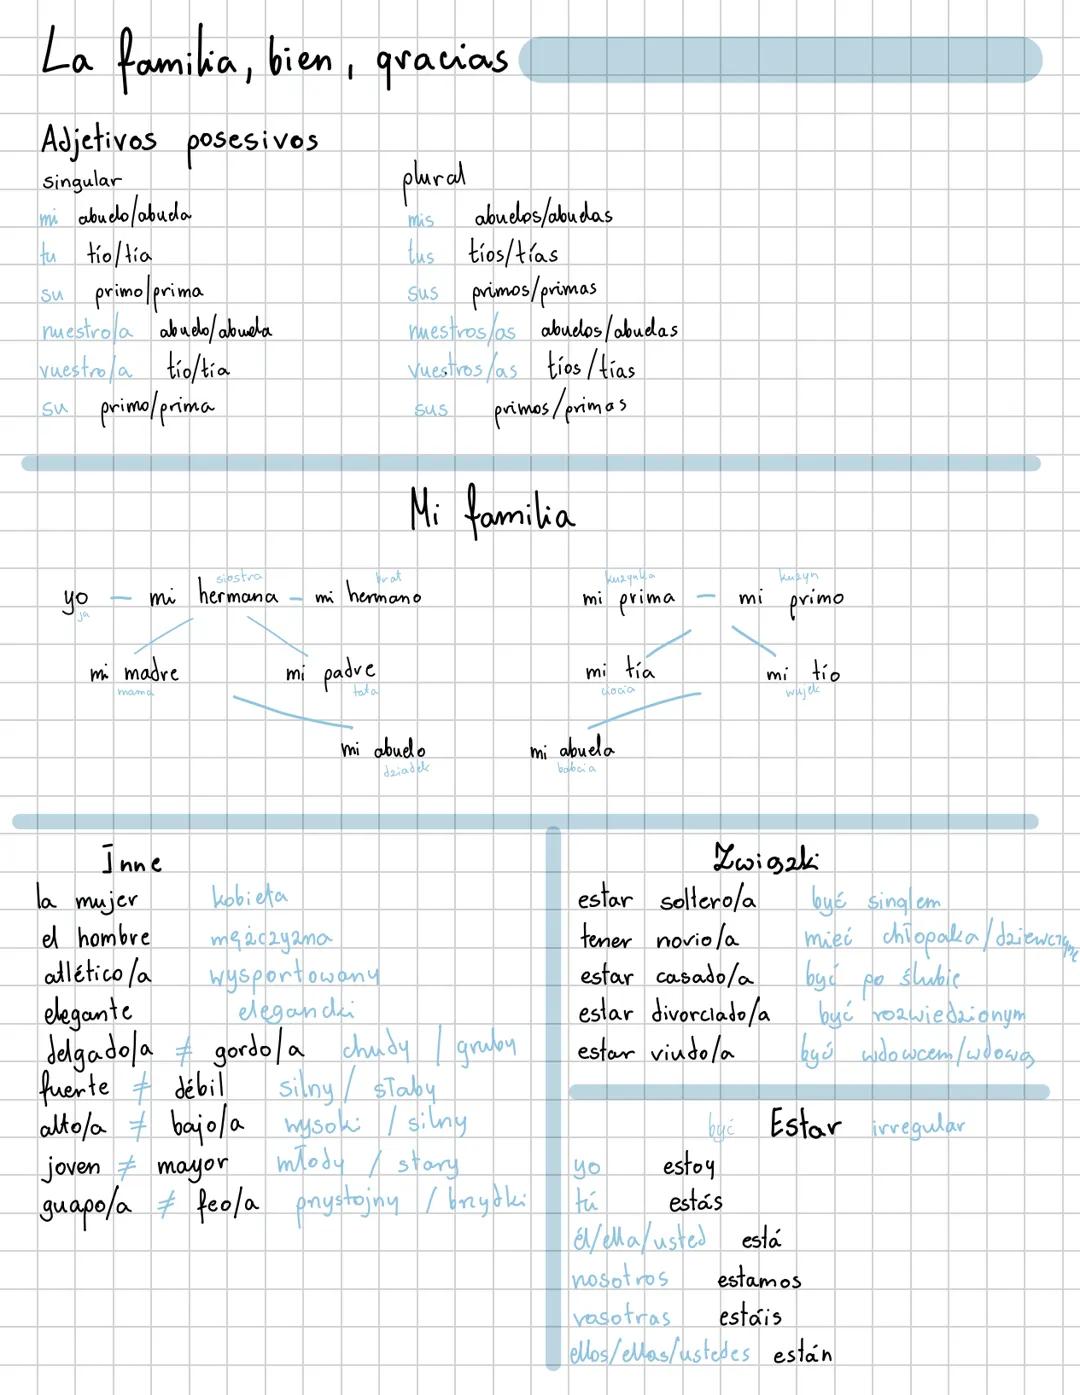 La familia, bien, gracias
Adjetivos posesivos
singular
mi abuelo/abuela
tu tío/tía
su primo/prima
nuestro/a abuelo/abuela
vuestro/a tío/tía
su primo/prima
plural
mis abuelos/abuelas
tus tíos/tías
sus primos/primas
nuestros/as abuelos/abuelas
vuestros/as tíos/tías
sus primos/primas
Mi familia
siostra brat kuzynka kuzyn
yo - mi hermana - mi hermano mi prima - mi primo
ja
mi madre mi padre mi tía mi tío
mama tata ciocia wujek
mi abuelo mi abuela
dziadek babcia
Inne
la mujer kobieta
el hombre mężczyzna
atlético/a wysportowany
elegante elegancki
delgado/a ≠ gordo/a chudy / gruby
fuerte ≠ débil silny / słaby
alto/a ≠ bajo/a wysoki / silny
joven ≠ mayor młody / stary
guapo/a ≠ feo/a przystojny / brzydki
Związki
estar soltero/a być singlem
tener novio/a mieć chłopaka/dziewczynę
estar casado/a być po ślubie
estar divorciado/a być rozwiedzionym
estar viudo/a być wdowcem/wdową
być Estar irregular
yo estoy
tú estás
él/ella/usted está
nosotros estamos
vasotras estáis
ellos/ellas/ustedes están